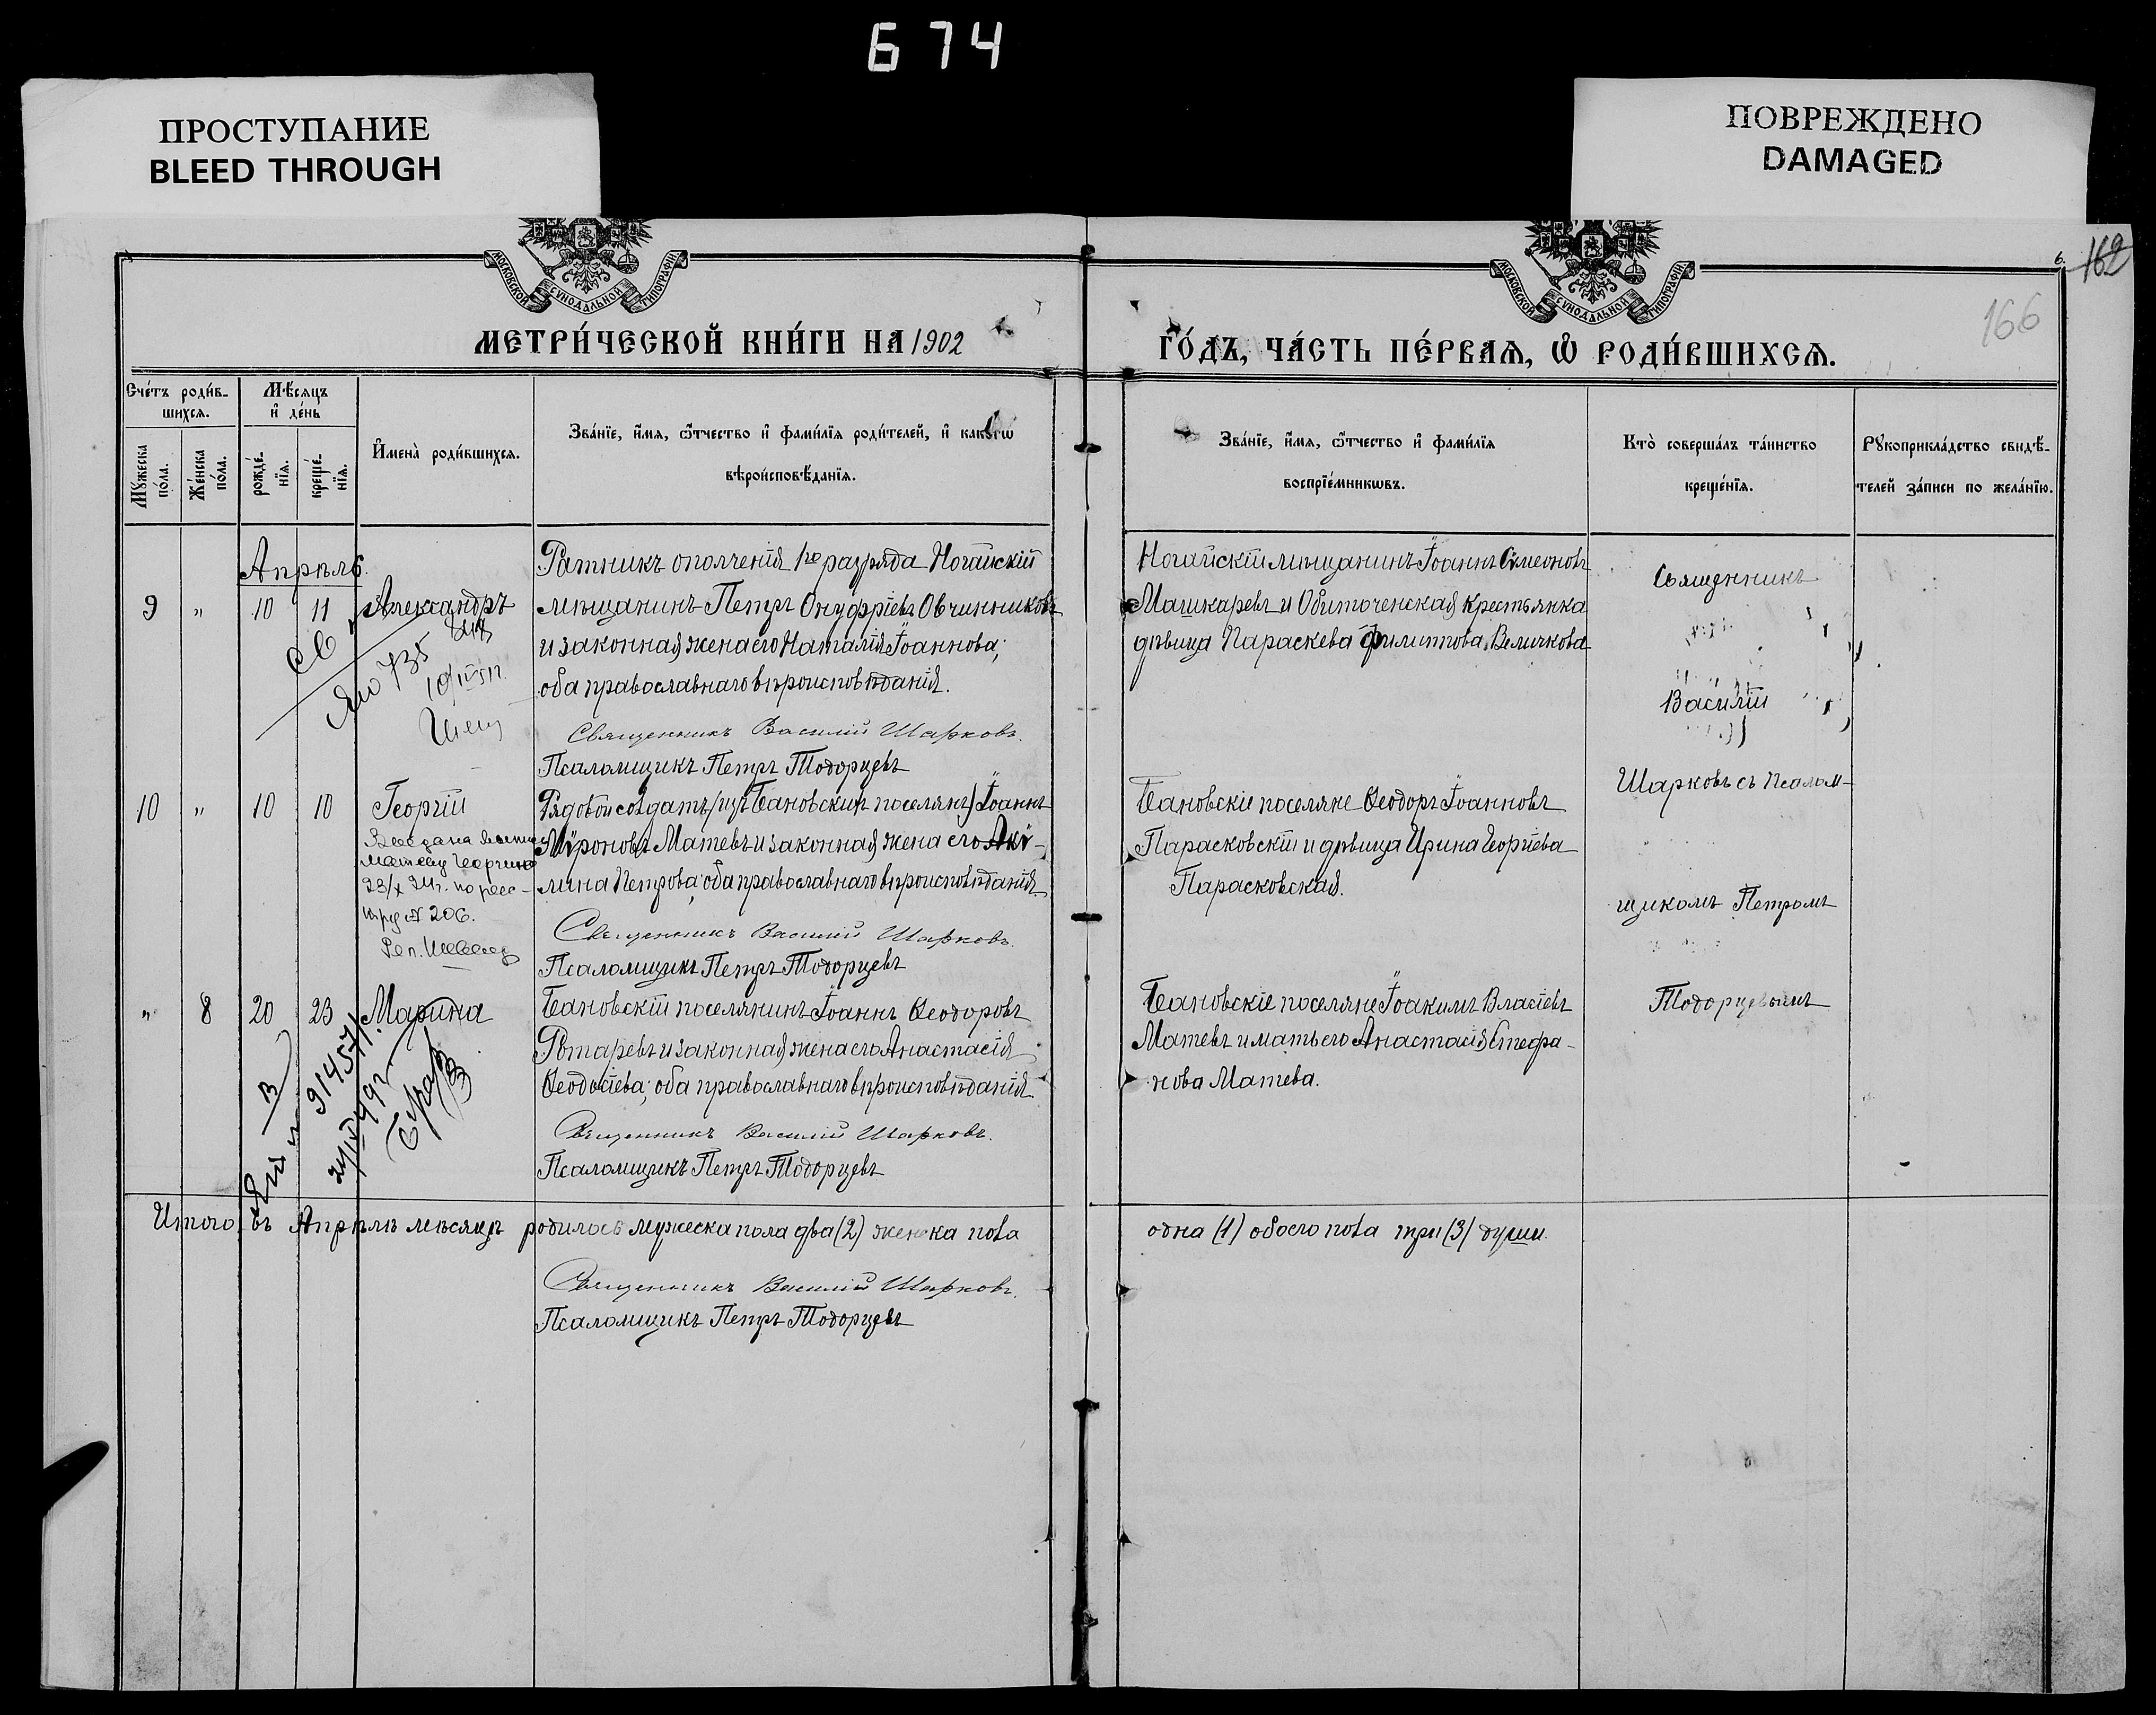 674
ПРОСТУПАНИЕ
BLEED THROUGH
ПОВРЕЖДЕНО
DAMAGED
МОСКОВСКОЙ СУНОДАЛЬНОЙ ТИПОГРАФІИ
МОСКОВСКОЙ СУНОДАЛЬНОЙ ТИПОГРАФІИ
6.
162
166
МЕТРИ́ЧЕСКОЙ КНИ́ГИ НА 1902
ГО́ДЪ, ЧА́СТЬ ПЕ́РВАѦ, Ѡ РОДИ́ВШИХСѦ.
Сче́тъ роди́в-
шихсѧ.
Мѣ́сѧцъ
и҆ де́нь
Мꙋ́жеска
по́ла.
Же́нска
по́ла.
рожде́-
нїѧ.
креще́-
нїѧ.
И҆мена̀ роди́вшихсѧ.
Зва́нїе, и҆́мѧ, ѻ҆́тчество и҆ фами́лїѧ роди́телей, и҆ како́гѡ
вѣроисповѣ́данїѧ.
Зва́нїе, и҆́мѧ, ѻ҆́тчество и҆ фами́лїѧ
воспрїе́мникѡвъ.
Кто̀ соверша́лъ та́инство
креще́нїѧ.
Рꙋкоприкла́дство свидѣ́-
телей за́писи по жела́нїю.
Апрѣль.
9 " 10 11 Александръ
Ратникъ ополченія 1го разряда Ногайскій
мѣщанинъ Петръ Онуфріевъ Овчинниковъ
и законная жена его Наталія Іоаннова;
оба православнаго вѣроисповѣданія.
Священникъ Василій Шарковъ.
Псаломщикъ Петръ Тодорцевъ
735
Ногайскій мѣщанинъ Іоаннъ Симеоновъ
Машкаревъ и Обиточенская крестьянка
дѣвица Параскева Филиппова Величкова
Священникъ
Василій
Шарковъ съ Псалом-
щикомъ Петромъ
Тодорцевымъ
10 " 10 10 Георгій
Матеву Георгию
23/X 24г. по реес-
тру № 206.
Рядовой солдатъ (изъ Бановскихъ поселянъ) Іоаннъ
Мѵроновъ Матевъ и законная жена его Аки-
лина Петрова; оба православнаго вѣроисповѣданія.
Священникъ Василій Шарковъ.
Псаломщикъ Петръ Тодорцевъ
Бановскіе поселяне Ѳеодоръ Іоанновъ
Парасковскій и дѣвица Ирина Георгіева
Парасковская.
" 8 20 23 Марина
914571
Бановскій поселянинъ Іоаннъ Ѳеодоровъ
Ротаревъ и законная жена его Анастасія
Ѳеодосіева; оба православнаго вѣроисповѣданія.
Священникъ Василій Шарковъ.
Псаломщикъ Петръ Тодорцевъ
Бановскіе поселяне Іоакимъ Власіевъ
Матевъ и мать его Анастасія Стефа-
нова Матева.
Итого въ Апрѣлѣ мѣсяцѣ родилось мужеска пола два (2) женска пола
одна (1) обоего пола три (3) души.
Священникъ Василій Шарковъ.
Псаломщикъ Петръ Тодорцевъ